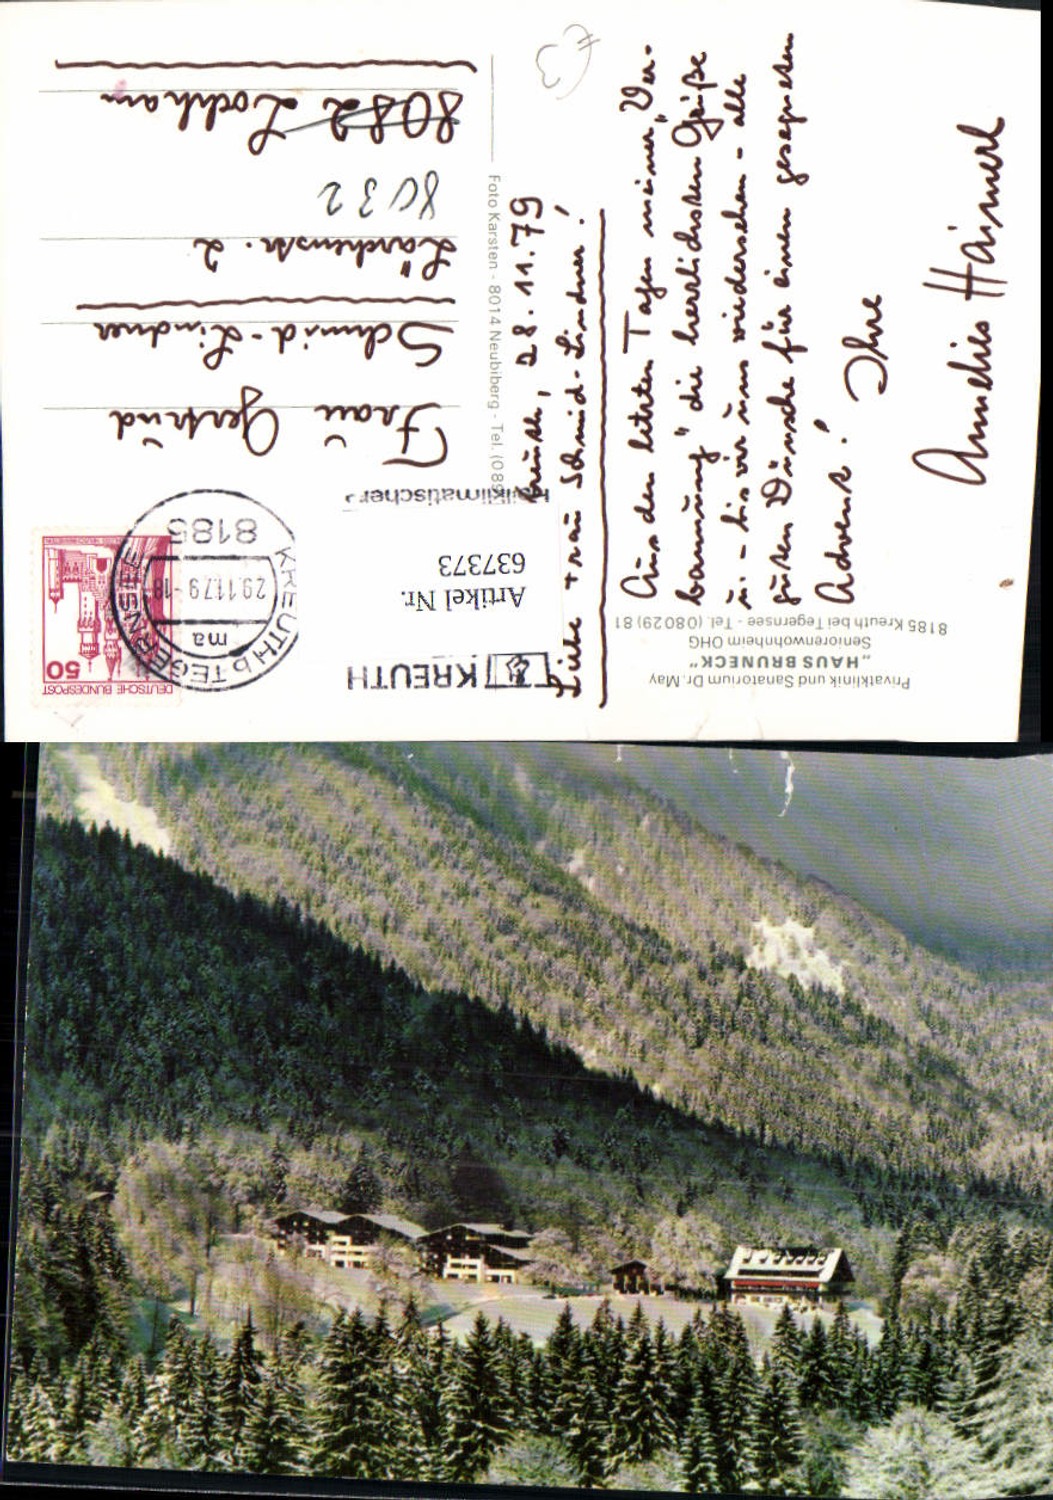 Privatklinik und Sanatorium Dr. May
„HAUS BRUNECK"
Seniorenwohnheim OHG
8185 Kreuth bei Tegernsee - Tel. (08029) 81
Kreuth, 28.11.79
Liebe Frau Schmid-Lindner!
Aus den letzten Tagen meiner „Ver-
bannung" die herzlichsten Grüße
u. - bis wir uns wiedersehen - alle
guten Wünsche für einen gesegneten
Advent! Ihre
Annelies Haimerl
Foto Karsten - 8014 Neubiberg - Tel. (089
KREUTH
Heilklimatischer
Artikel Nr.
637373
DEUTSCHE BUNDESPOST
50
KREUTH b TEGERNSEE
ma
29.11.79-18
8185
Frau Gertrud
Schmid-Lindner
Lärchenstr. 2
8032
8082 Lochham